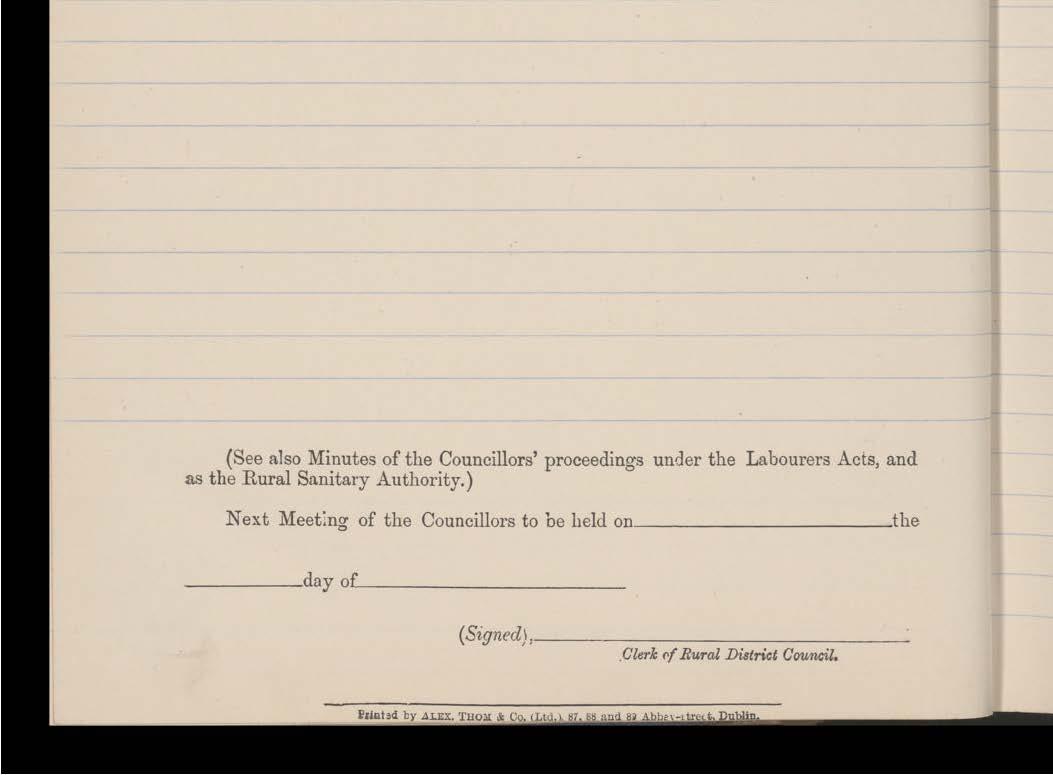 (See also Minutes of the Councillors' proceedings under the Labourers Acts, and
as the Rural Sanitary Authority.)
Next Meeting of the Councillors to be held on the
day of
(Signed),
Clerk of Rural District Council.
Printed by ALEX. THOM & Co. (Ltd.), 87, 88 and 89 Abbey-street, Dublin.